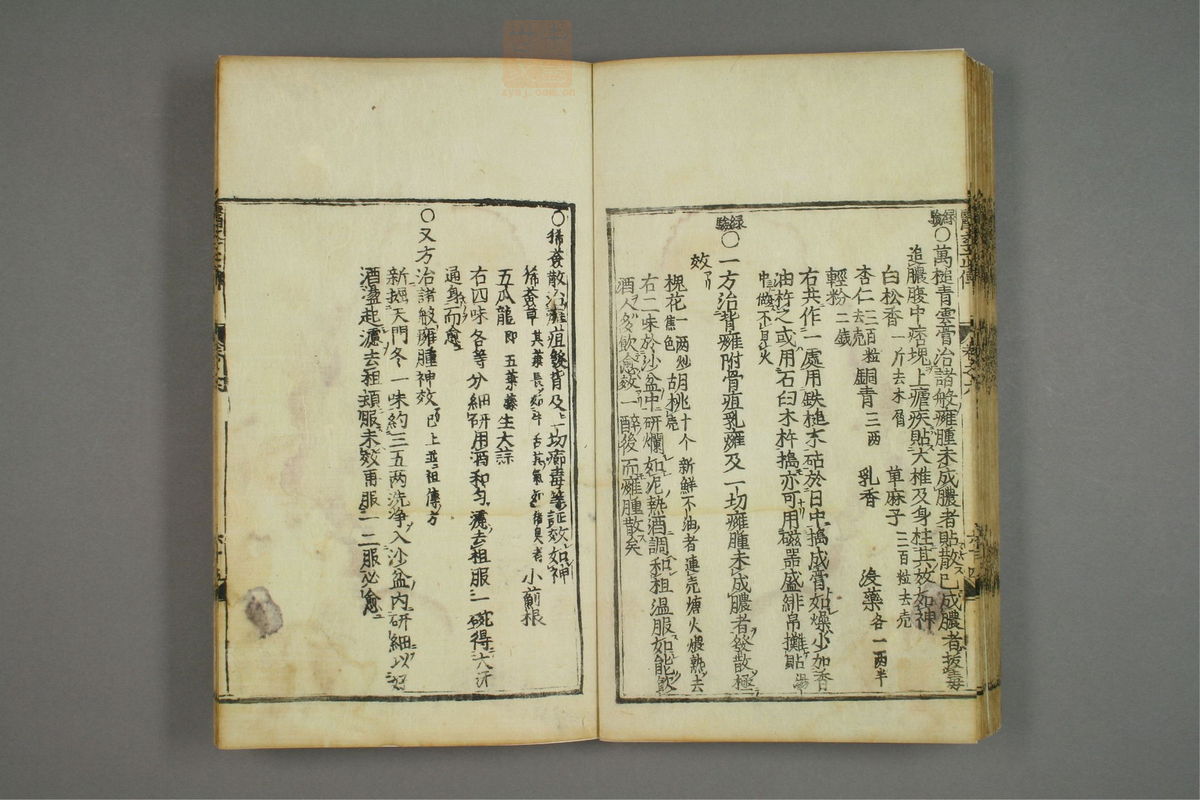 ○萬槌青雲膏治諸般癰腫未成膿者貼散已成膿者拔毒
追膿腹中痞塊上瘧疾貼大椎及身柱其效如神
白松香一斤去木屑 草麻子三百粒去壳
杏仁三百粒去壳 銅青三两 乳香 沒藥各一两半
輕粉二錢
右共作一處用鉄槌木砧於日中搗成膏如燥少加香
油杵之或用石臼木杵搗亦可用磁器盛緋帛攤貼湯
中做不見火
○一方治背癰附骨疽乳癰及一切癰腫未成膿者發散極
效
槐花一两炒焦色 胡桃十个新鮮不油者連壳煻火煨熟去壳
右二味於沙盆中研爛如泥熱酒調和粗温服如能飲
酒人多飲愈效一醉後而癰腫散矣
○豨薟散治癰疽發背及一切疔毒等証效如神
豨薟草 小薊根
五爪龍即五葉藤 生大蒜
右四味各等分細研用酒和勻濾去粗服一碗得大汗
通身而愈
○又方治諸般癰腫神效已上並祖傳方
新掘天門冬一味約三五两洗淨入沙盆内研細以好
酒盪起濾去粗頓服未效再服一二服必愈